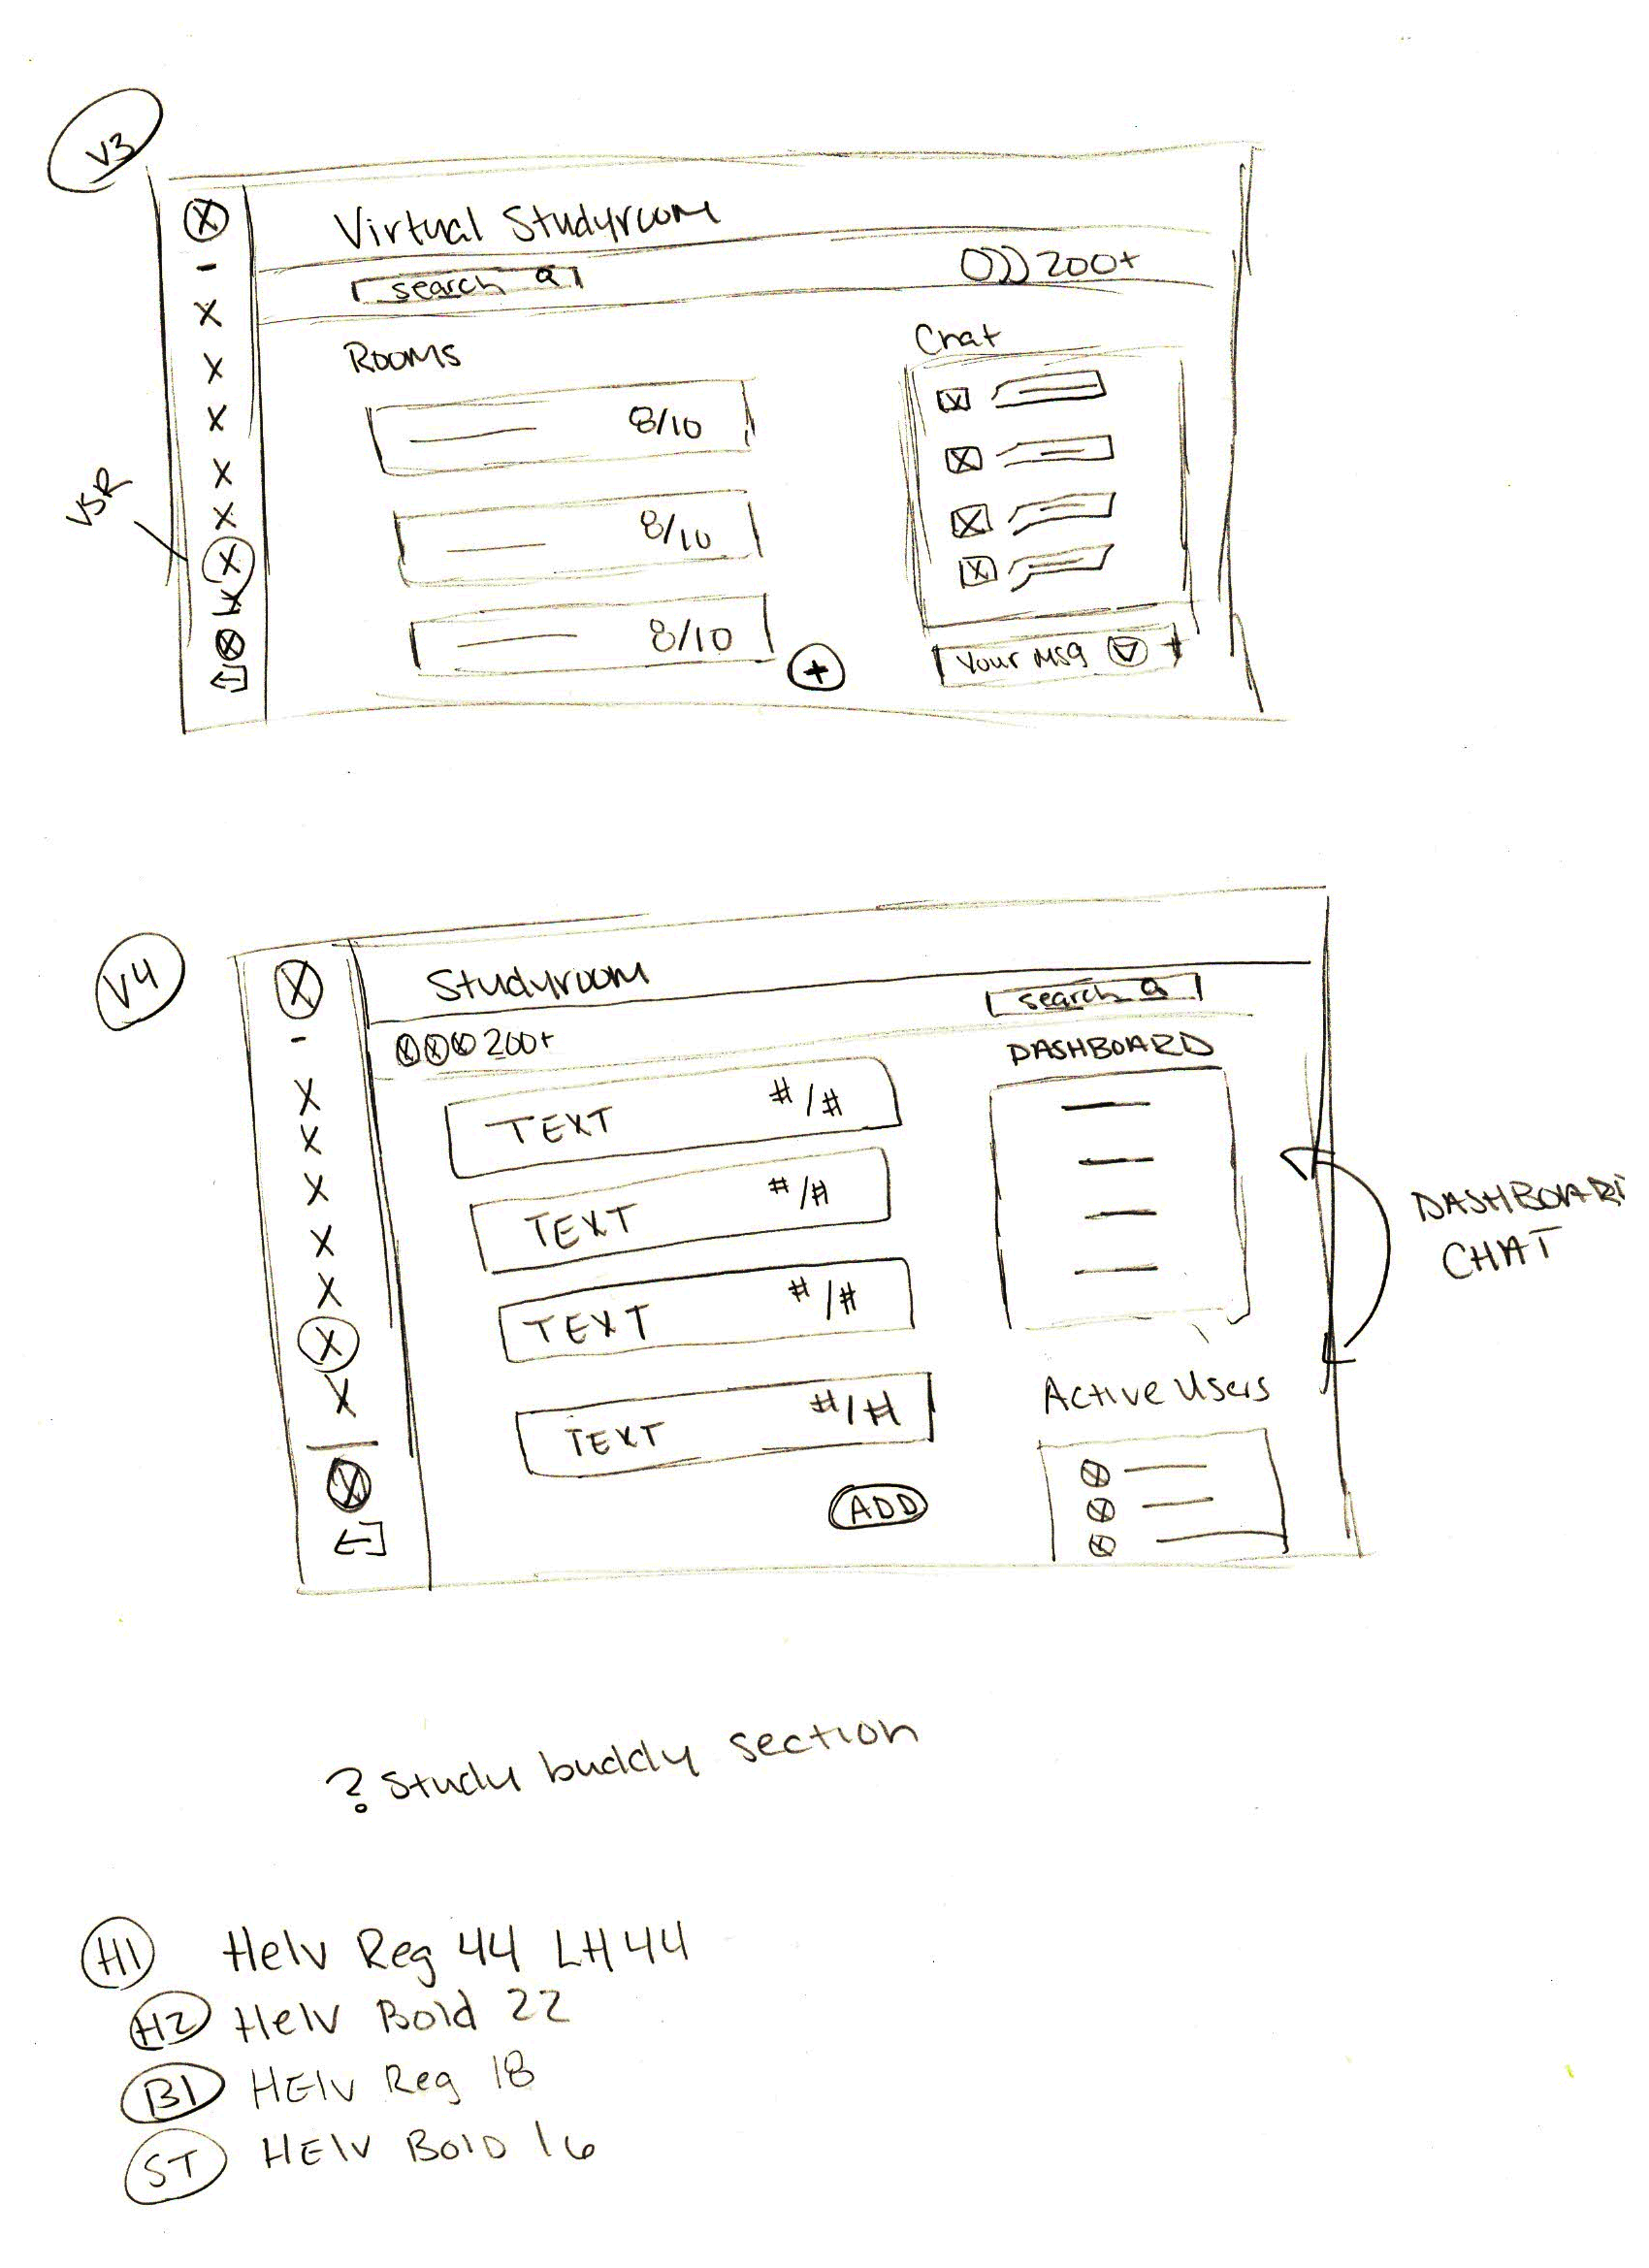 V3
Virtual Studyroom
search
200+
Rooms
Chat
8/10
8/10
8/10
+
Your Msg
VSR
V4
Studyroom
search
200+
DASHBOARD
TEXT #/#
TEXT #/#
TEXT #/#
TEXT #/#
ADD
Active Users
DASHBOARD
CHAT
? Study buddy section
H1 Helv Reg 44 LH44
H2 Helv Bold 22
B1 HElv Reg 18
ST HElv BOlD 16